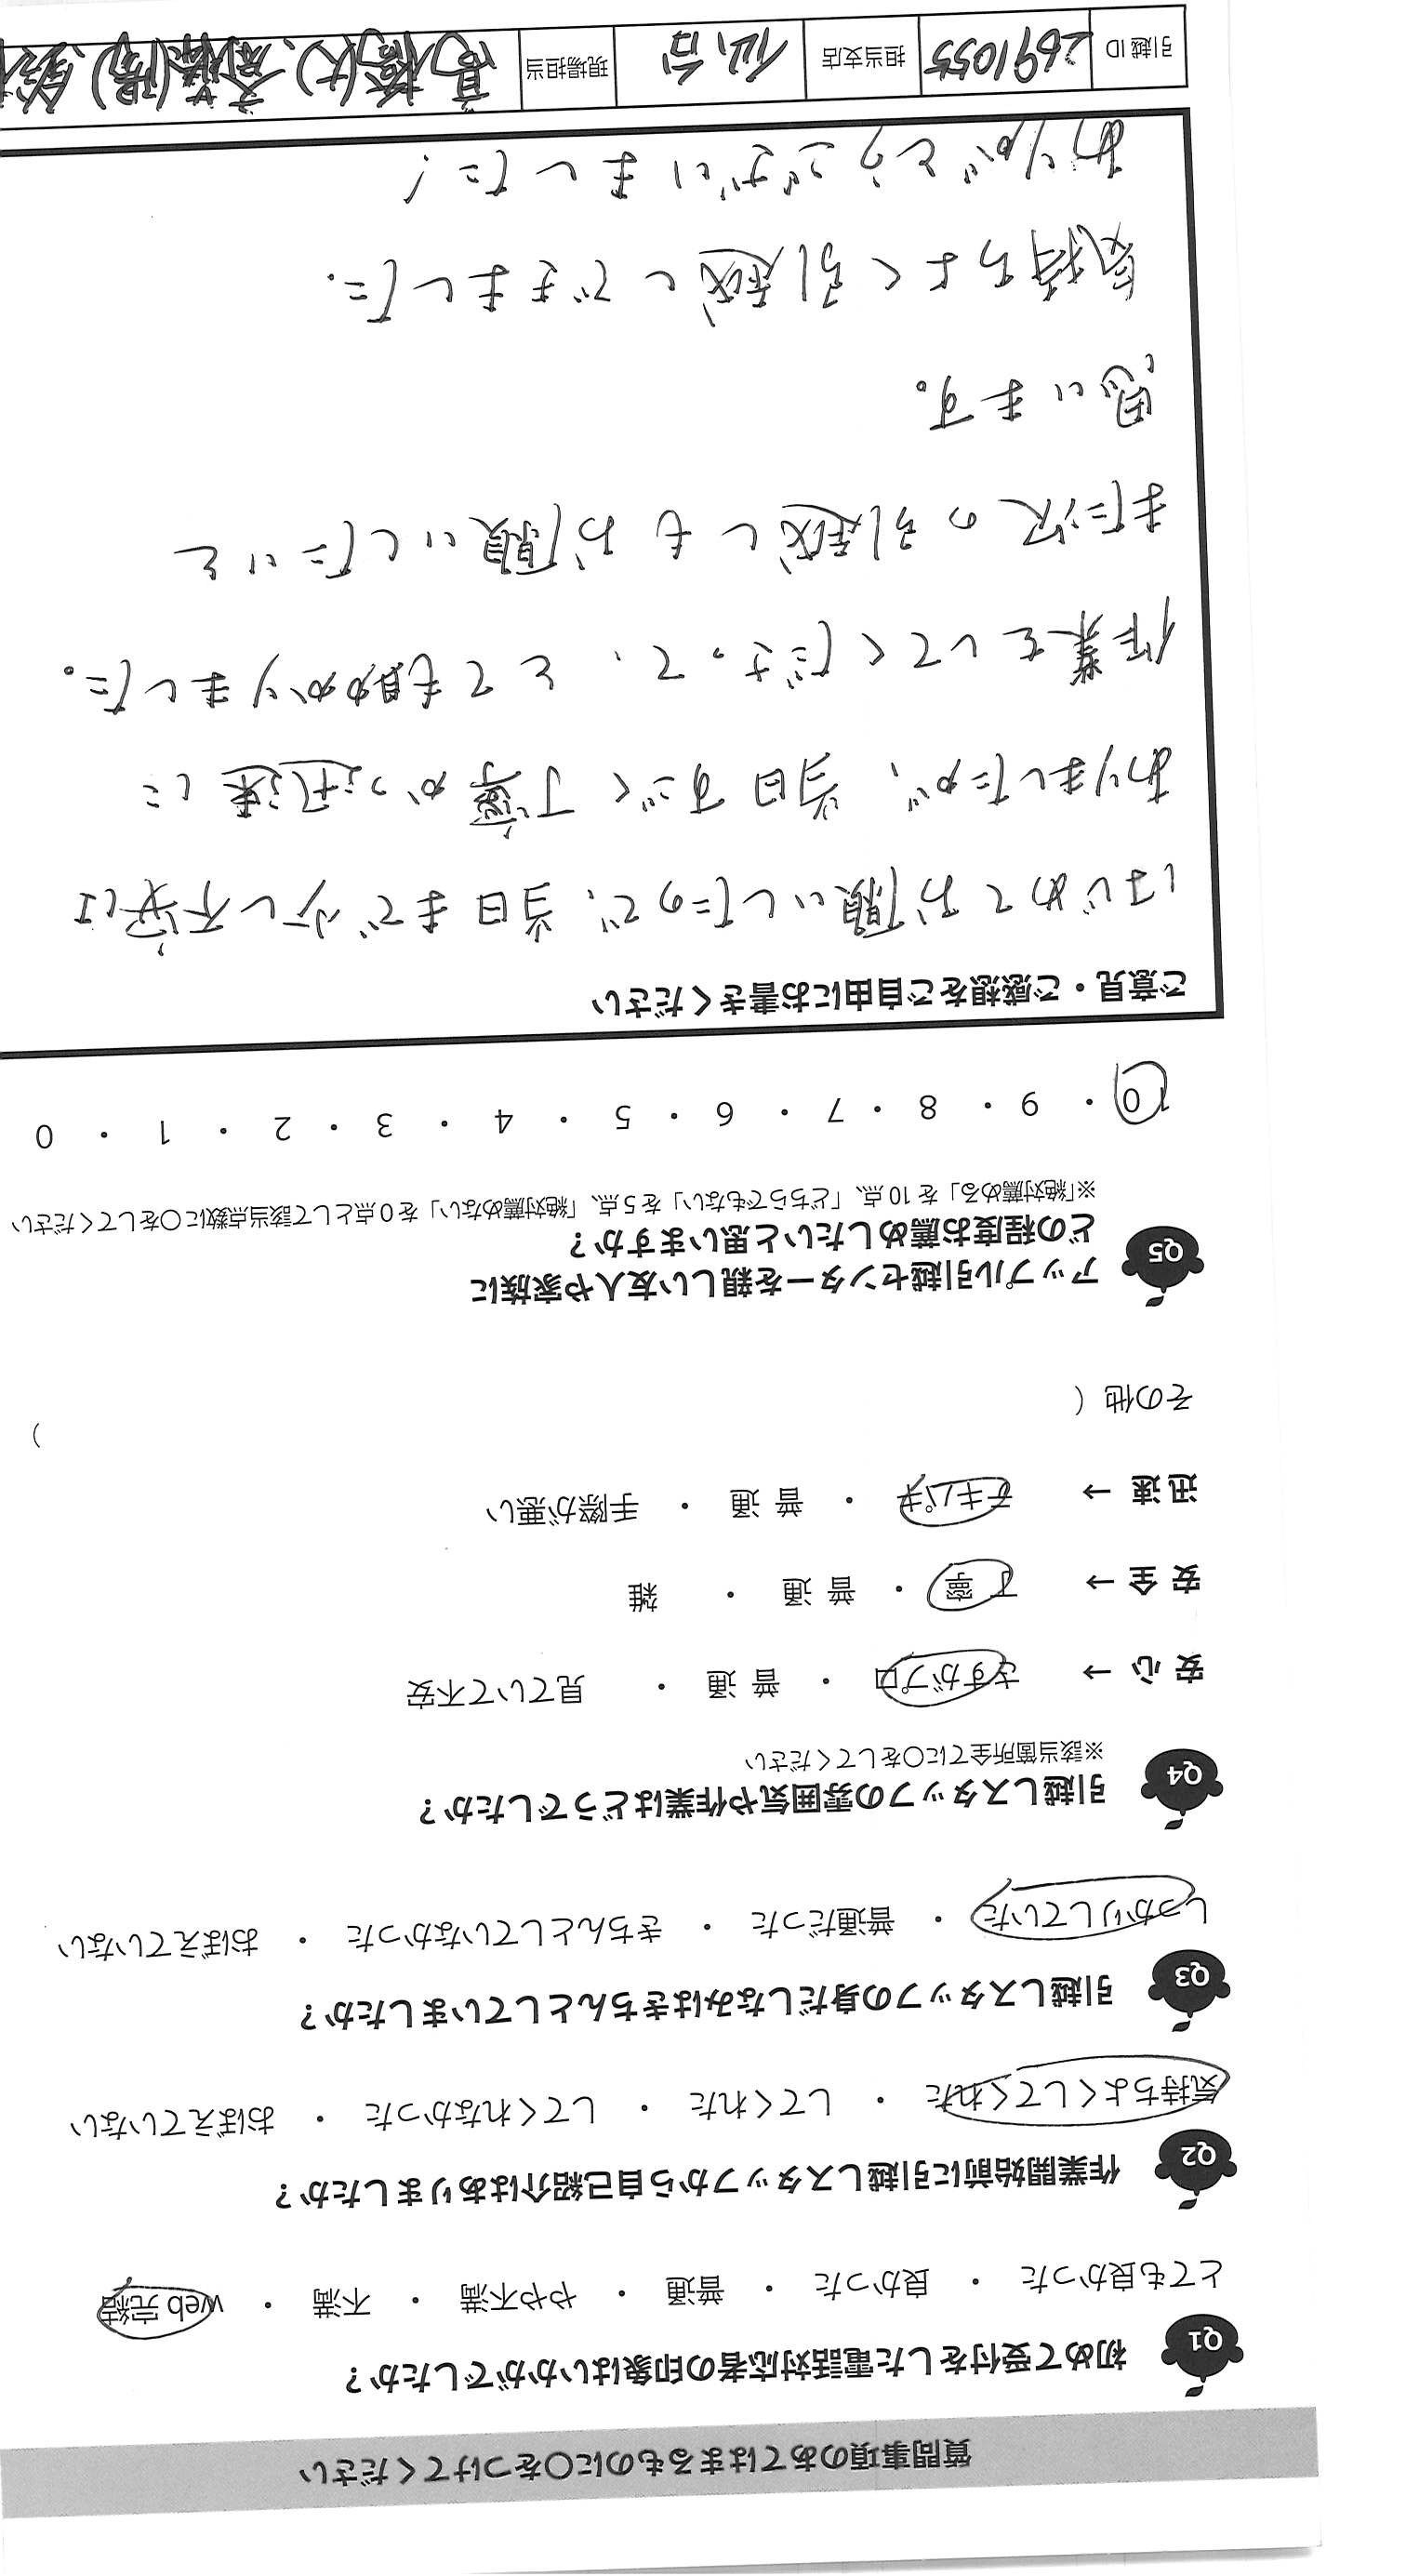 質問事項のあてはまるものに○をつけてください
Q1 初めて受付をした電話対応者の印象はいかがでしたか？
とても良かった ・ 良かった ・ 普通 ・ やや不満 ・ 不満 ・ web完結
Q2 作業開始前に引越しスタッフから自己紹介はありましたか？
気持ちよくしてくれた ・ してくれた ・ してくれなかった ・ おぼえていない
Q3 引越しスタッフの身だしなみはきちんとしていましたか？
しっかりしていた ・ 普通だった ・ きちんとしていなかった ・ おぼえていない
Q4 引越しスタッフの雰囲気や作業はどうでしたか？
※該当箇所全てに○をしてください
安心 → さすがプロ ・ 普通 ・ 見ていて不安
安全 → 丁寧 ・ 普通 ・ 雑
迅速 → テキパキ ・ 普通 ・ 手際が悪い
その他（ ）
Q5 アップル引越センターを親しい友人や家族に
どの程度お薦めしたいと思いますか？
※「絶対薦める」を10点、「どちらでもない」を5点、「絶対薦めない」を0点として該当点数に○をしてください
10 ・ 9 ・ 8 ・ 7 ・ 6 ・ 5 ・ 4 ・ 3 ・ 2 ・ 1 ・ 0
ご意見・ご感想をご自由にお書きください
はじめてお願いしたので、当日まで少し不安は
ありましたが、当日すごく丁寧かつ迅速に
作業をしてくださって、とても助かりました。
また次の引越しもお願いしたいと
思います。
気持ちよく引越しできました.
ありがとうございました！
引越ID 2691055 担当支店 仙台 現場担当 高橋(大)、斎藤(陽)